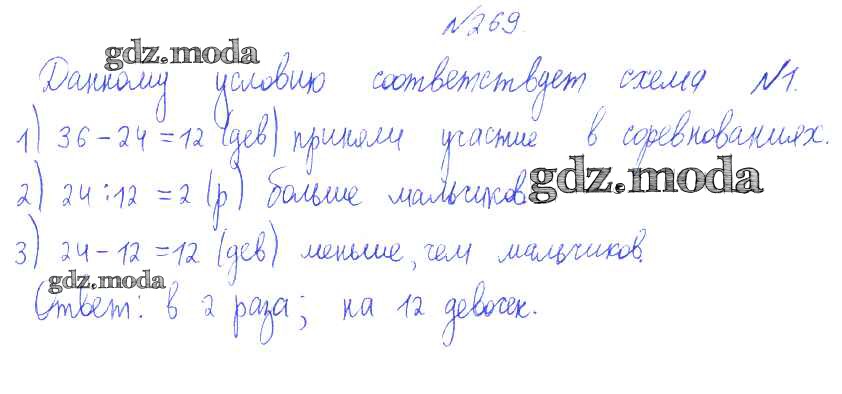 №269.
gdz.moda
Данному условию соответствует схема №1.
1) 36-24=12 (дев) приняли участие в соревнованиях.
2) 24:12=2 (р) больше мальчиков
gdz.moda
3) 24-12=12 (дев) меньше, чем мальчиков.
gdz.moda
Ответ: в 2 раза; на 12 девочек.